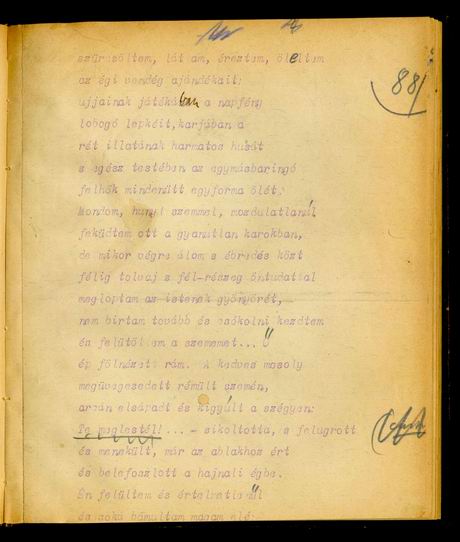 88
szürcsöltem, láttam, éreztem, öleltem
az égi vendég ajándékait:
ujjainak játékában a napfény
lobogó lepkéit, karjában a
rét illatának harmatos husát
s egész testében az egymásbaringó
felhők mindenütt egyforma ölét.
Mondom, hunyt szemmel, mozdulatlanúl
feküdtem ott a gyanutlan karokban,
de mikor végre álom s ébredés közt
félig tolvaj s fél-részeg öntudattal
megloptam az istenek gyönyörét,
nem birtam tovább és csókolni kezdtem
és felütöttem a szememet... Ű
ép fölnézett rám. A kedves mosoly
megüvegesedett rémült szemén,
arcán elsápadt és kigyúlt a szégyen:
Te meglestél!... - sikoltotta, s felugrott
és menekült, már az ablakhoz ért
és belefoszlott a hajnali égbe.
Én felültem és értelmetlenűl
és soká bámultam magam elé.